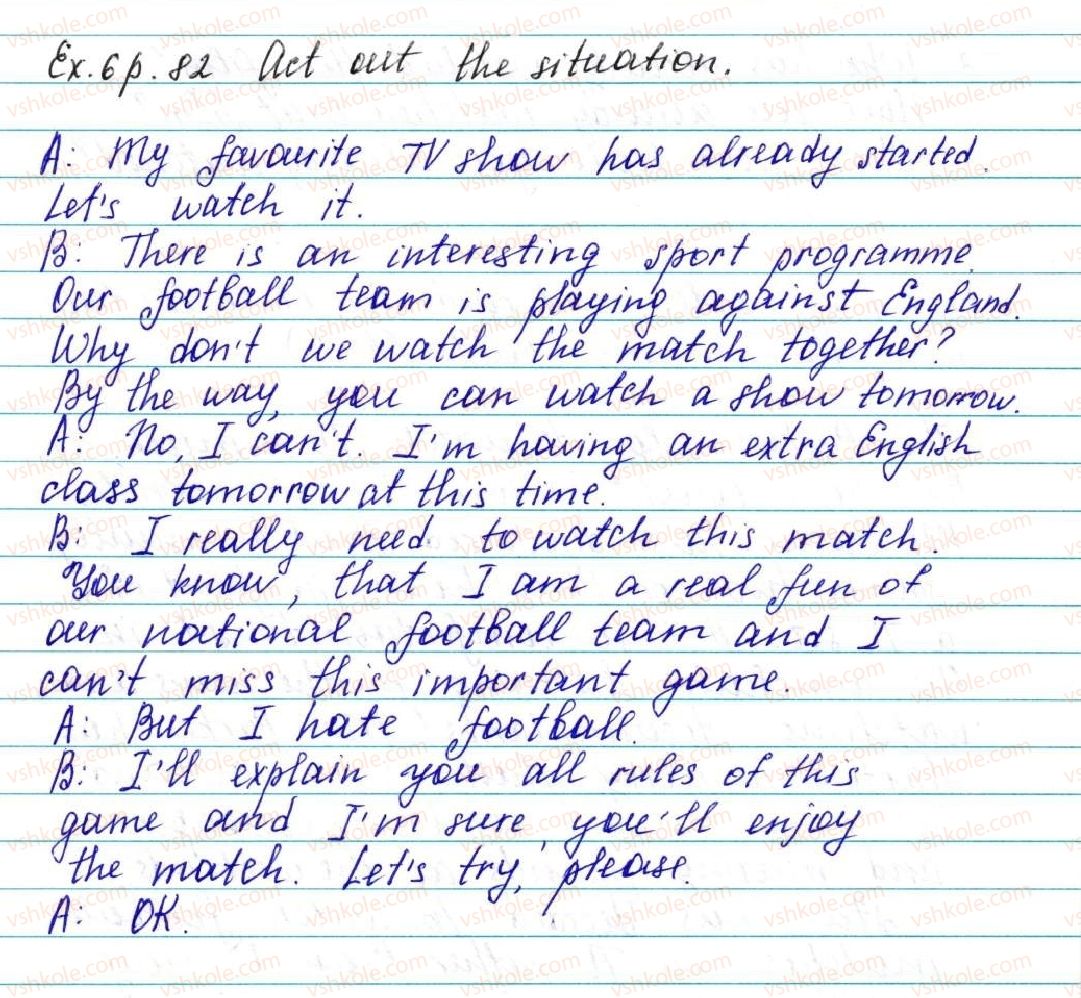 Ex. 6 p. 82 Act out the situation.
A: My favourite TV show has already started.
Let's watch it.
B: There is an interesting sport programme.
Our football team is playing against England.
Why don't we watch the match together?
By the way, you can watch a show tomorrow.
A: No, I can't. I'm having an extra English
class tomorrow at this time.
B: I really need to watch this match.
You know, that I am a real fun of
our national football team and I
can't miss this important game.
A: But I hate football.
B: I'll explain you all rules of this
game and I'm sure, you'll enjoy
the match. Let's try, please.
A: OK.